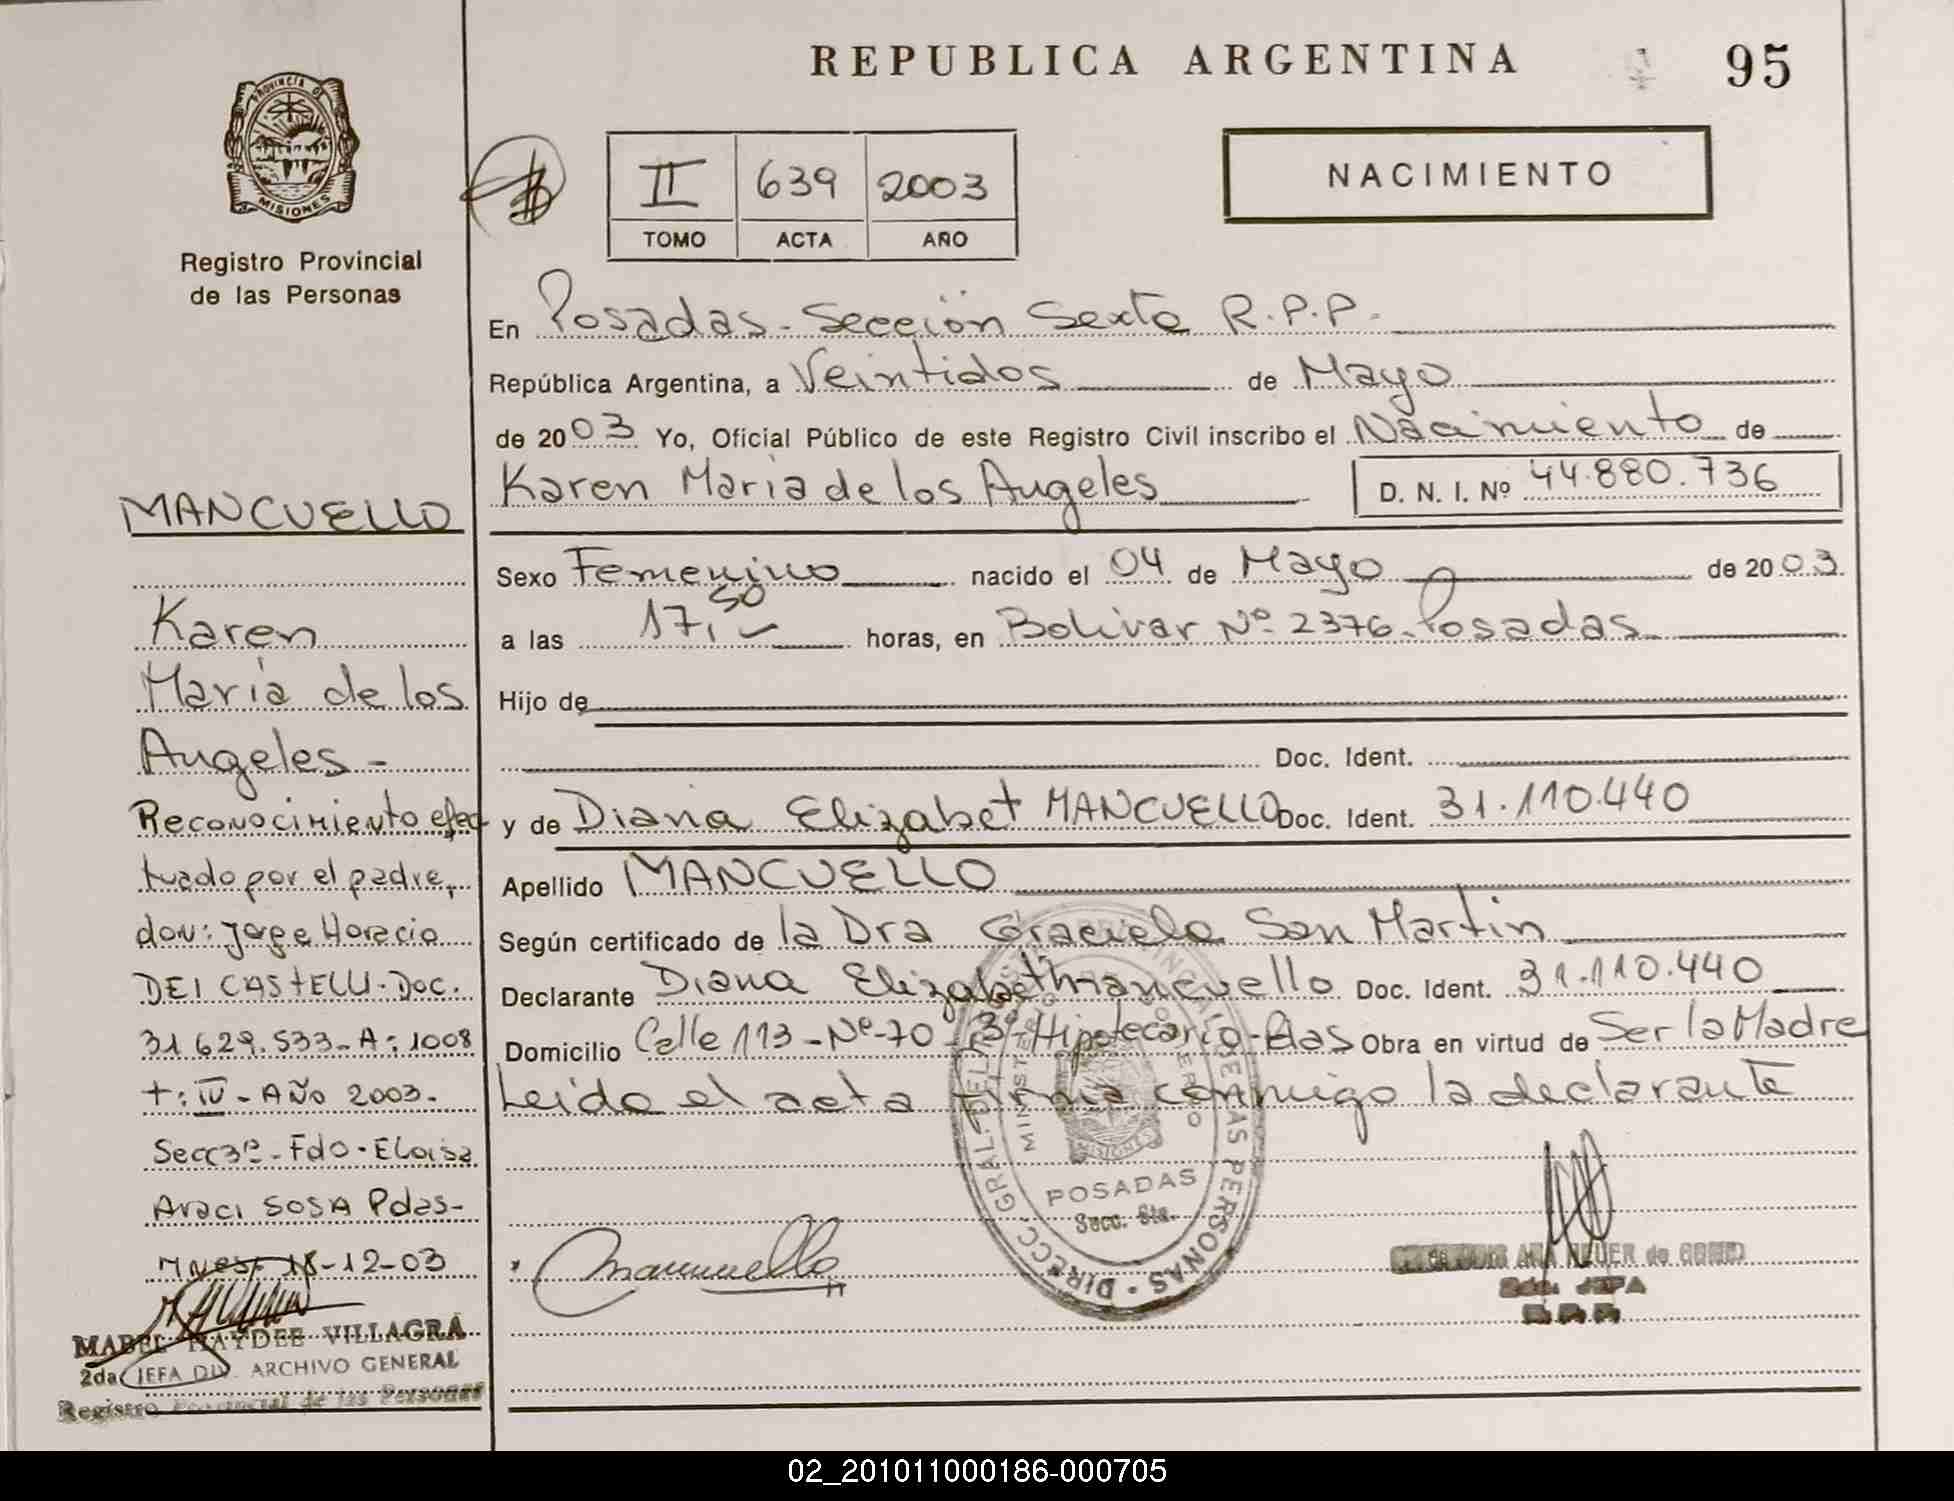 REPUBLICA ARGENTINA
95
PROVINCIA DE
MISIONES
Registro Provincial
de las Personas
II 639 2003
TOMO ACTA AÑO
NACIMIENTO
En Posadas - Sección Sexta R.P.P.
República Argentina, a Veintidos de Mayo
de 2003 Yo, Oficial Público de este Registro Civil inscribo el Nacimiento de
Karen Maria de los Angeles D. N. I. Nº 44.880.736
Sexo Femenino nacido el 04 de Mayo de 2003
a las 17,50 horas, en Bolivar Nº 2376 - Posadas
Hijo de
Doc. Ident.
y de Diana Elizabet MANCUELLO Doc. Ident. 31.110.440
Apellido MANCUELLO
Según certificado de la Dra Graciela San Martin
Declarante Diana Elizabeth Mancuello Doc. Ident. 31.110.440
Domicilio Calle 113 - Nº 70 - Bº Hipotecario - Pdas Obra en virtud de Ser la Madre
Leido el acta firma conmigo la declarante
MANCUELLO
Karen
María de los
Angeles -
Reconocimiento efec
tuado por el padre,
don: Jorge Horacio
DEI CASTELLI - Doc.
31629.533 - A: 1008
T: IV - AÑO 2003.
Secc 3ª - Fdo - Eloisa
Araci SOSA Pdas -
18-12-03
MABEL HAYDEE VILLAGRA
2da JEFA DIV. ARCHIVO GENERAL
Registro Provincial de las Personas
Mancuello
POSADAS
Secc. 6ta.
2da. JEFA
R.P.P.
02_201011000186-000705